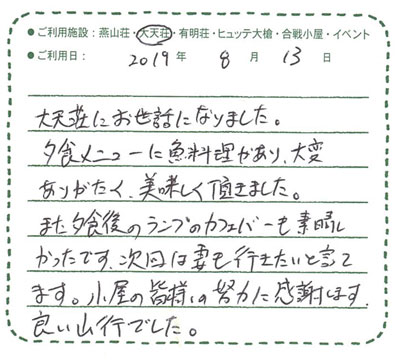 ●ご利用施設：燕山荘・大天荘・有明荘・ヒュッテ大槍・合戦小屋・イベント
●ご利用日： 2019 年 8 月 13 日
大天荘にお世話になりました。
夕食メニューに魚料理があり、大変
ありがたく、美味しく頂きました。
また夕食後のランプのカフェバーも素晴し
かったです。次回は妻も行きたいと言て
ます。小屋の皆様の努力に感謝します。
良い山行でした。